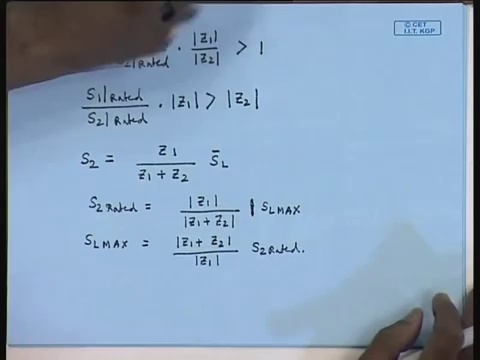 © CET
I.I.T. KGP
2|Rated · |Z1| / |Z2| > 1
S1|Rated / S2|Rated · |Z1| > |Z2|
S2 = Z1 / Z1 + Z2 S̄L
S2 Rated = |Z1| / |Z1 + Z2| | SLMAX
SLMAX = |Z1 + Z2| / |Z1| S2 Rated.